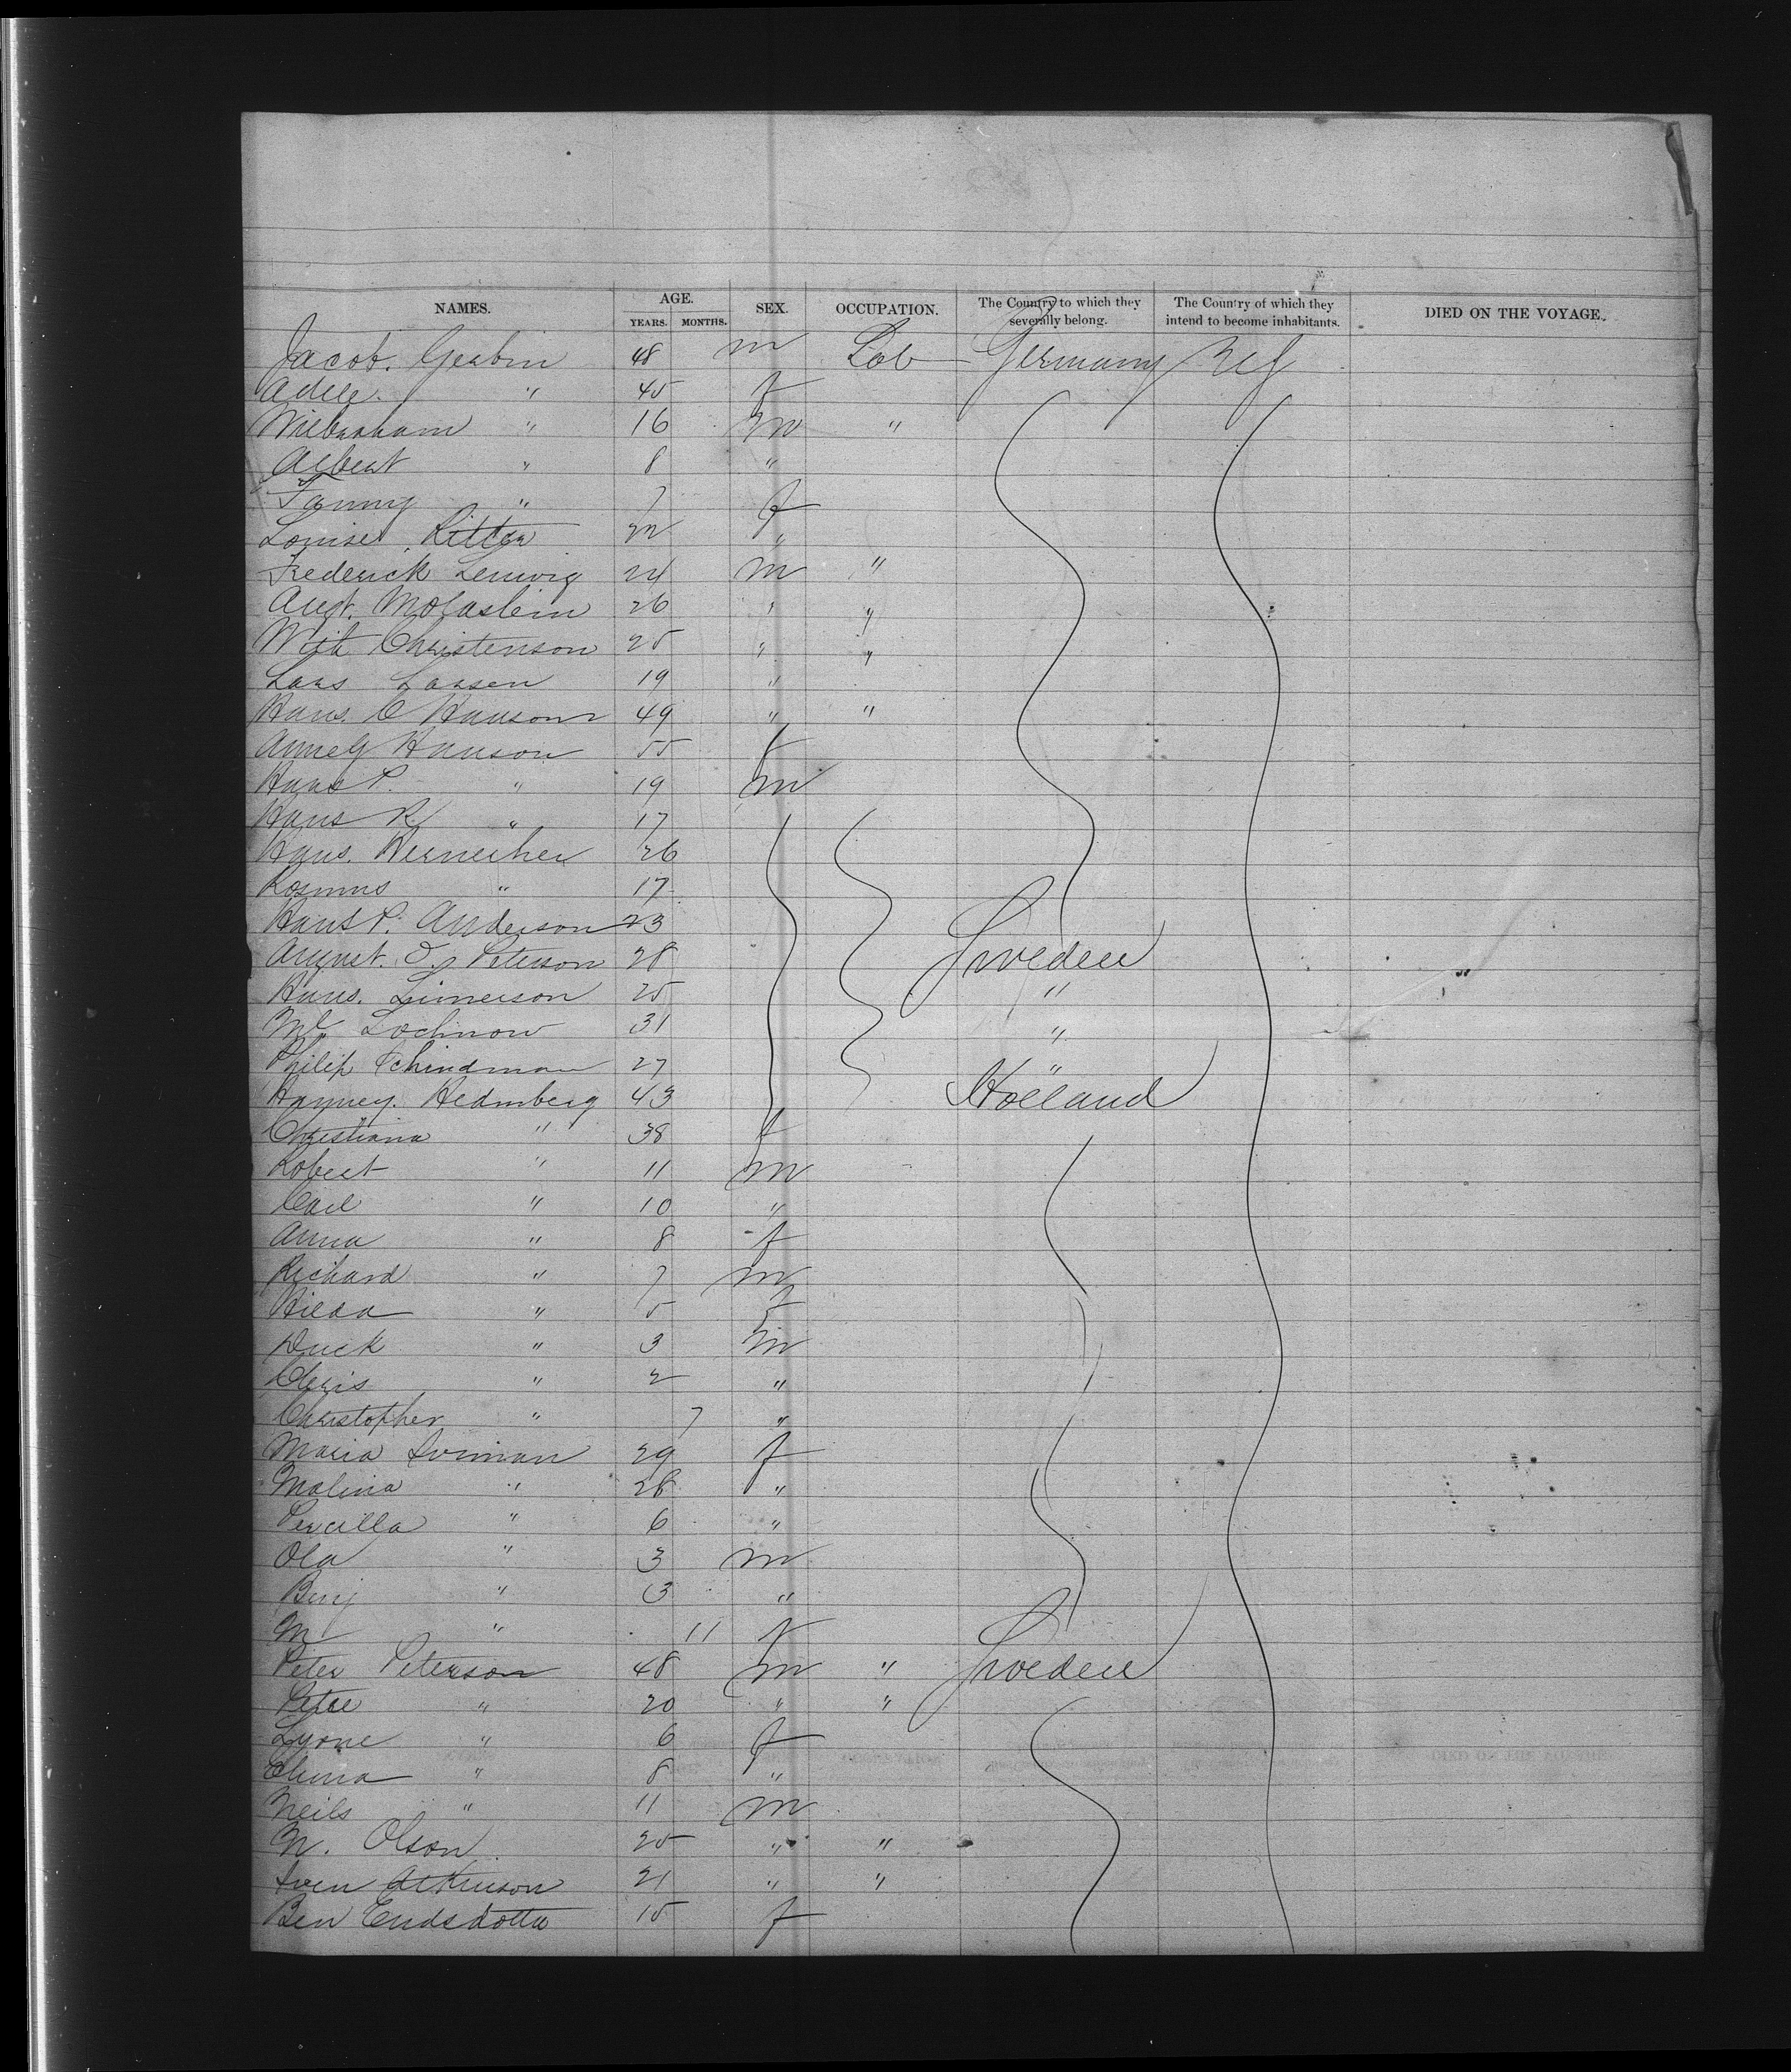 NAMES. AGE. YEARS. MONTHS. SEX. OCCUPATION. The Country to which they severally belong. The Country of which they intend to become inhabitants. DIED ON THE VOYAGE.
Jacob. Gerbin 48 m Lab Germany
Adele. " 45 f
" 16 m "
Albert " 8 "
Fanny " 7 f
Louise Ritter 22 "
Frederick 24 m "
Augt. 26 " "
Christenson 25 " "
Lars Larsen 19 "
Hans. C Hanson 49 " "
Anne G Hanson 55 f
Hans P. " 19 m
Hans R " 17
Hans. 26
Rosmus " 17
Hans P. Anderson 23
August. O. Peterson 28 Sweden
Hans. Limerson 25 "
Lochnow 31 "
Philip Schindman 27 "
Hedmberg 43 Holland
Christiana " 38 f
Robert " 11 m
Carl " 10 "
Anna " 8 f
Richard " 7 m
Hilda " 5 f
Duck " 3 m
Chris " 2 "
Christopher " 7 "
Maria 29 f
Malina " 28 "
Percilla " 6 "
Ola " 3 m
Benj " 3 "
M " 11 f
Peter Peterson 48 m " Sweden
" 20 " "
" 6 f
" 8 "
Neils " 11 m
N. Olson 25 " "
Sven 21 " "
Ben Endsdotter 15 f